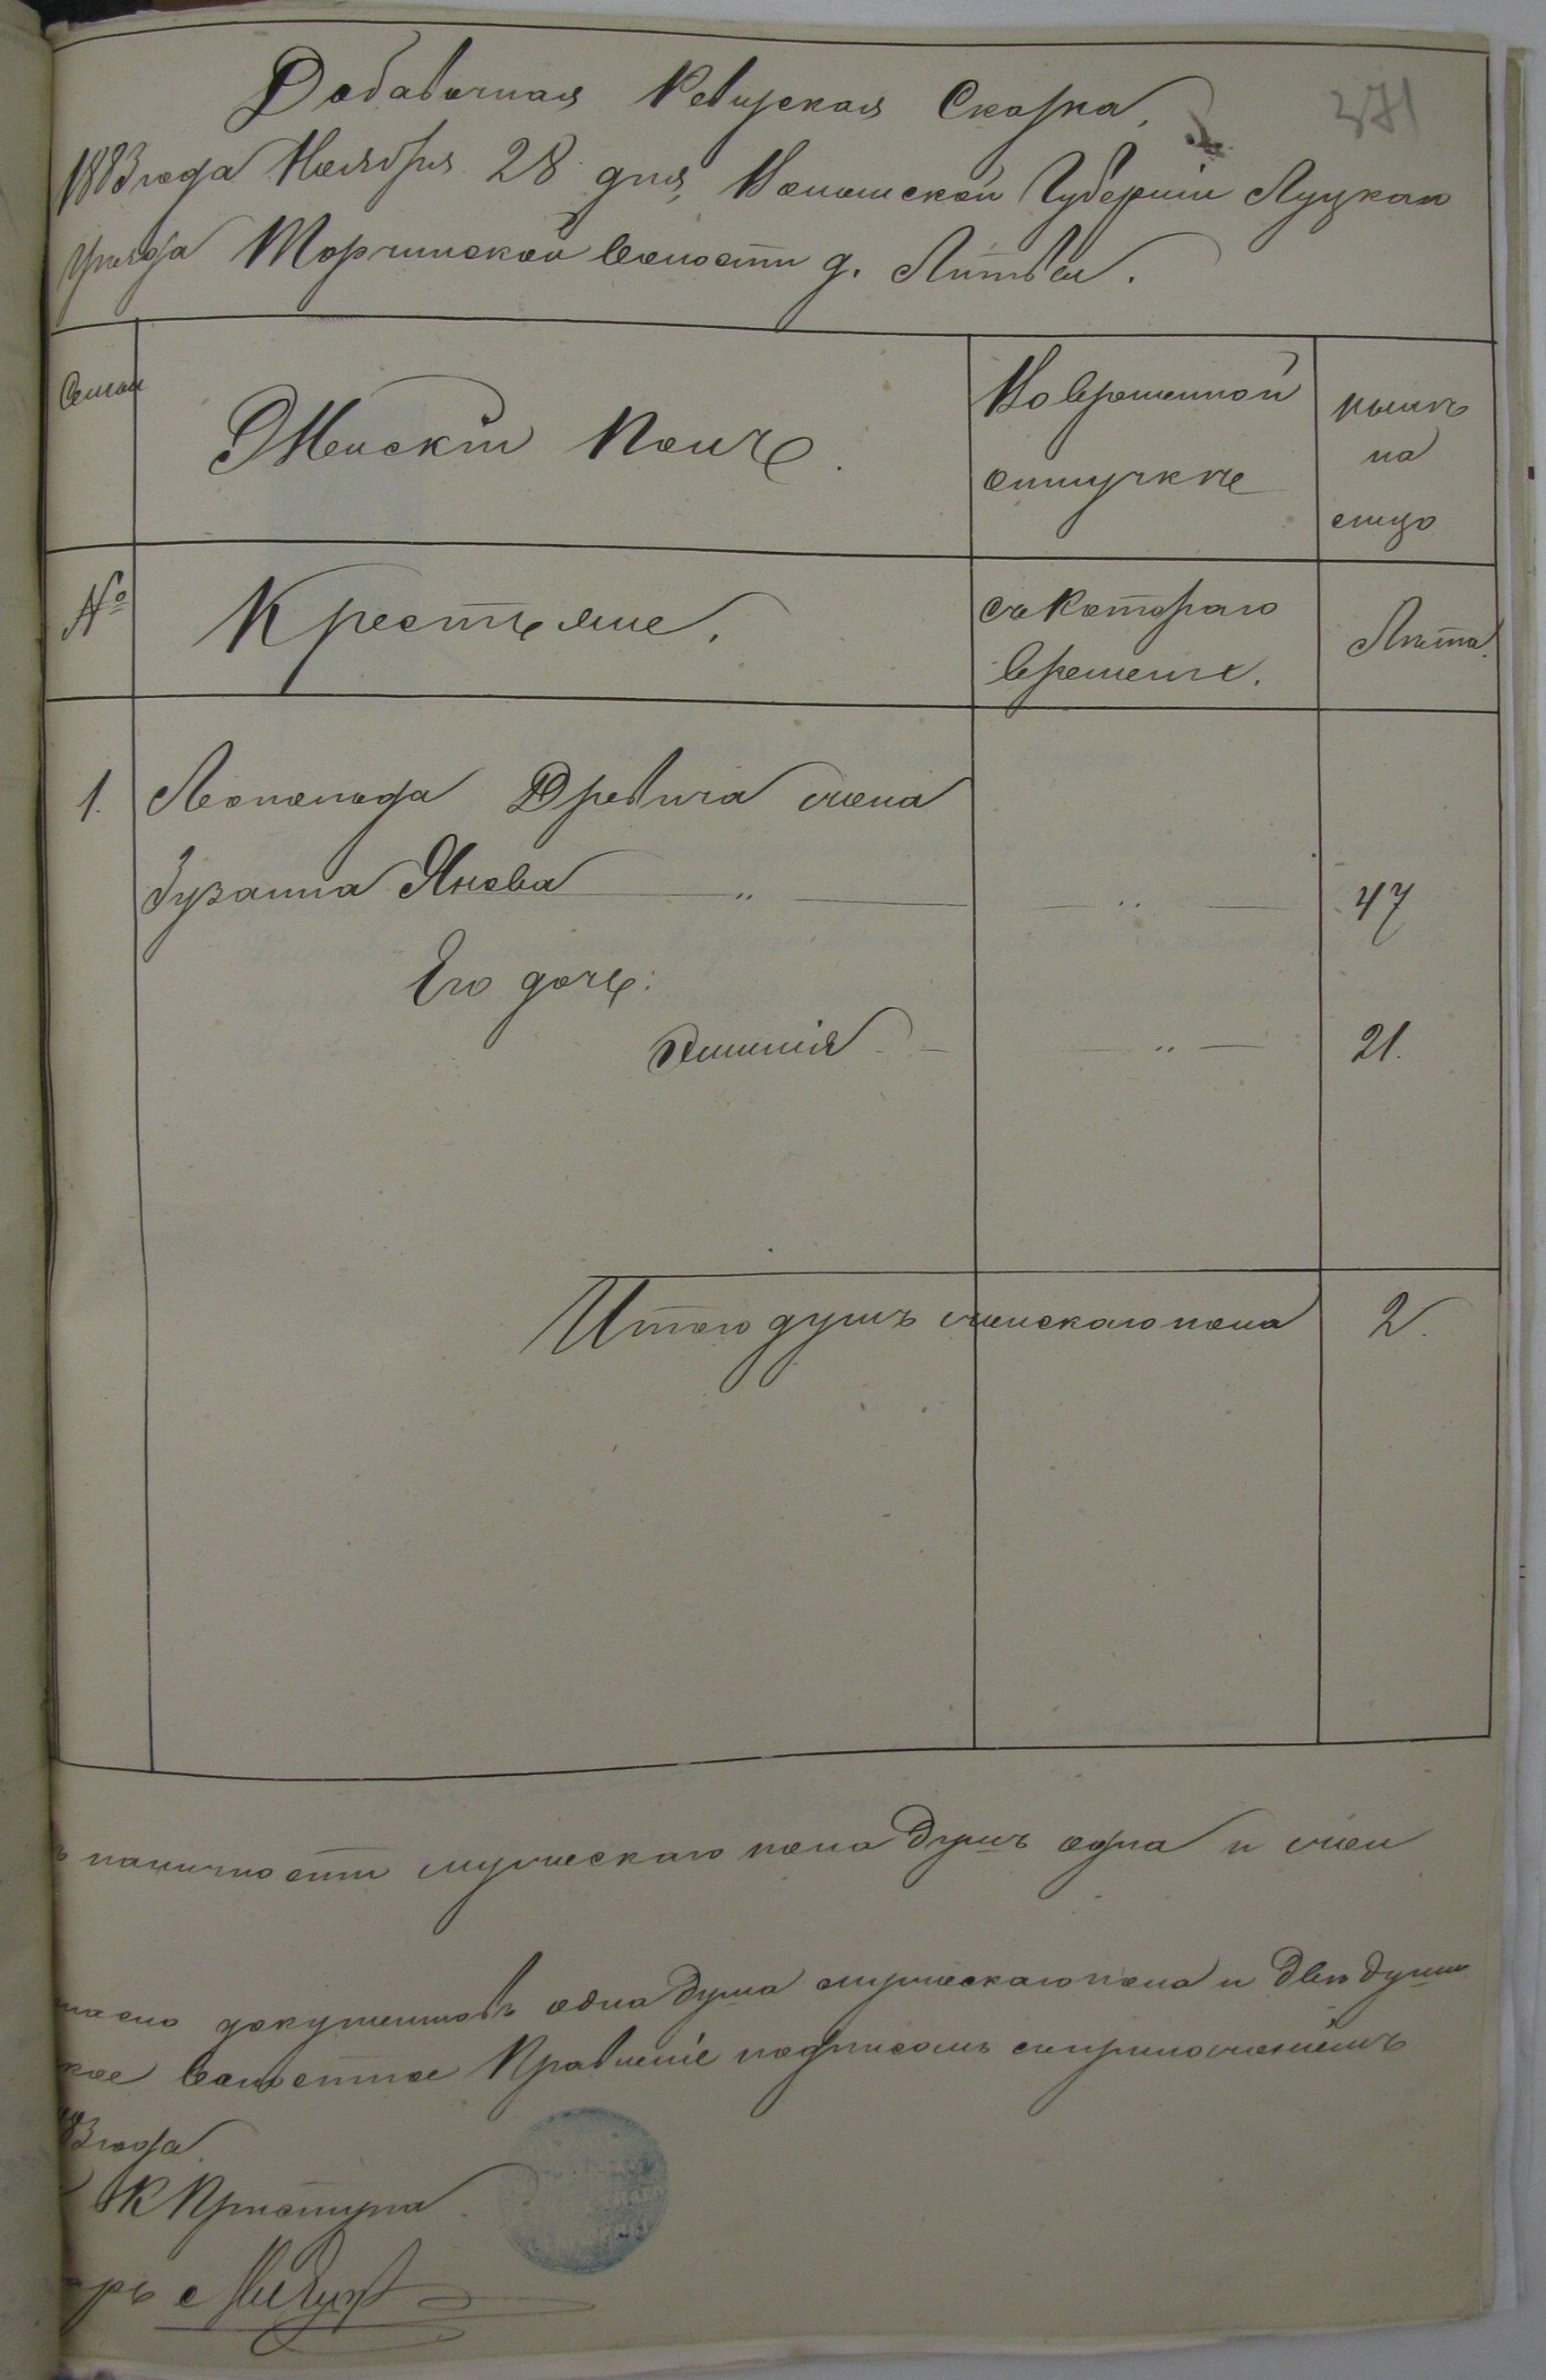 371
Добавочная Ревизская Сказка,
1883 года Ноября 28 дня, Волынской Губерніи Луцкаго
Уѣзда Торчинской волости д. Литва.
Семьи
Женскій Полъ.
Во временной
отлучкѣ
нынѣ
на
лицо
№
Крестьяне.
съ котораго
времени.
Лѣта.
1. Леопольда Древича жена
Зузанна Янова — " — — " — 47
Его дочь:
Эмилія — — " — 21.
Итого душъ женскаго пола 2.
ъ наличности мужескаго пола душъ одна и жен
гласно документовъ одна душа мужескаго пола и двѣ души
кое волостное Правленіе подписомъ съ приложеніемъ
83 года.
К Приступа
арь